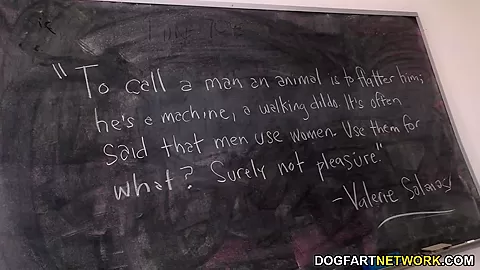 "To call a man an animal is to flatter him;
he's a machine, a walking dildo. It's often
said that men use women. Use them for
what? Surely not pleasure."
-Valerie Solanas
DOGFARTNETWORK.COM